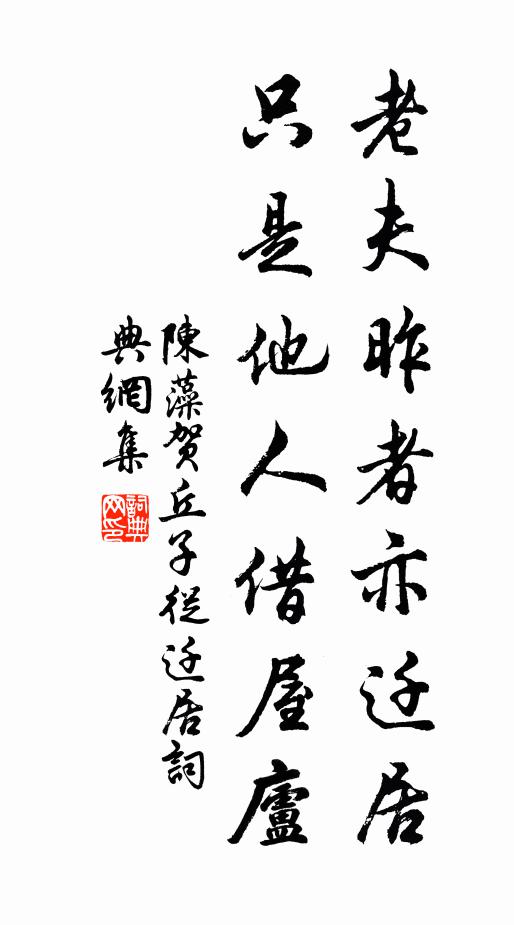 老夫昨者亦迁居
只是他人借屋廬
陳藻贺丘子從迁居詞
典網集
詞典
网印